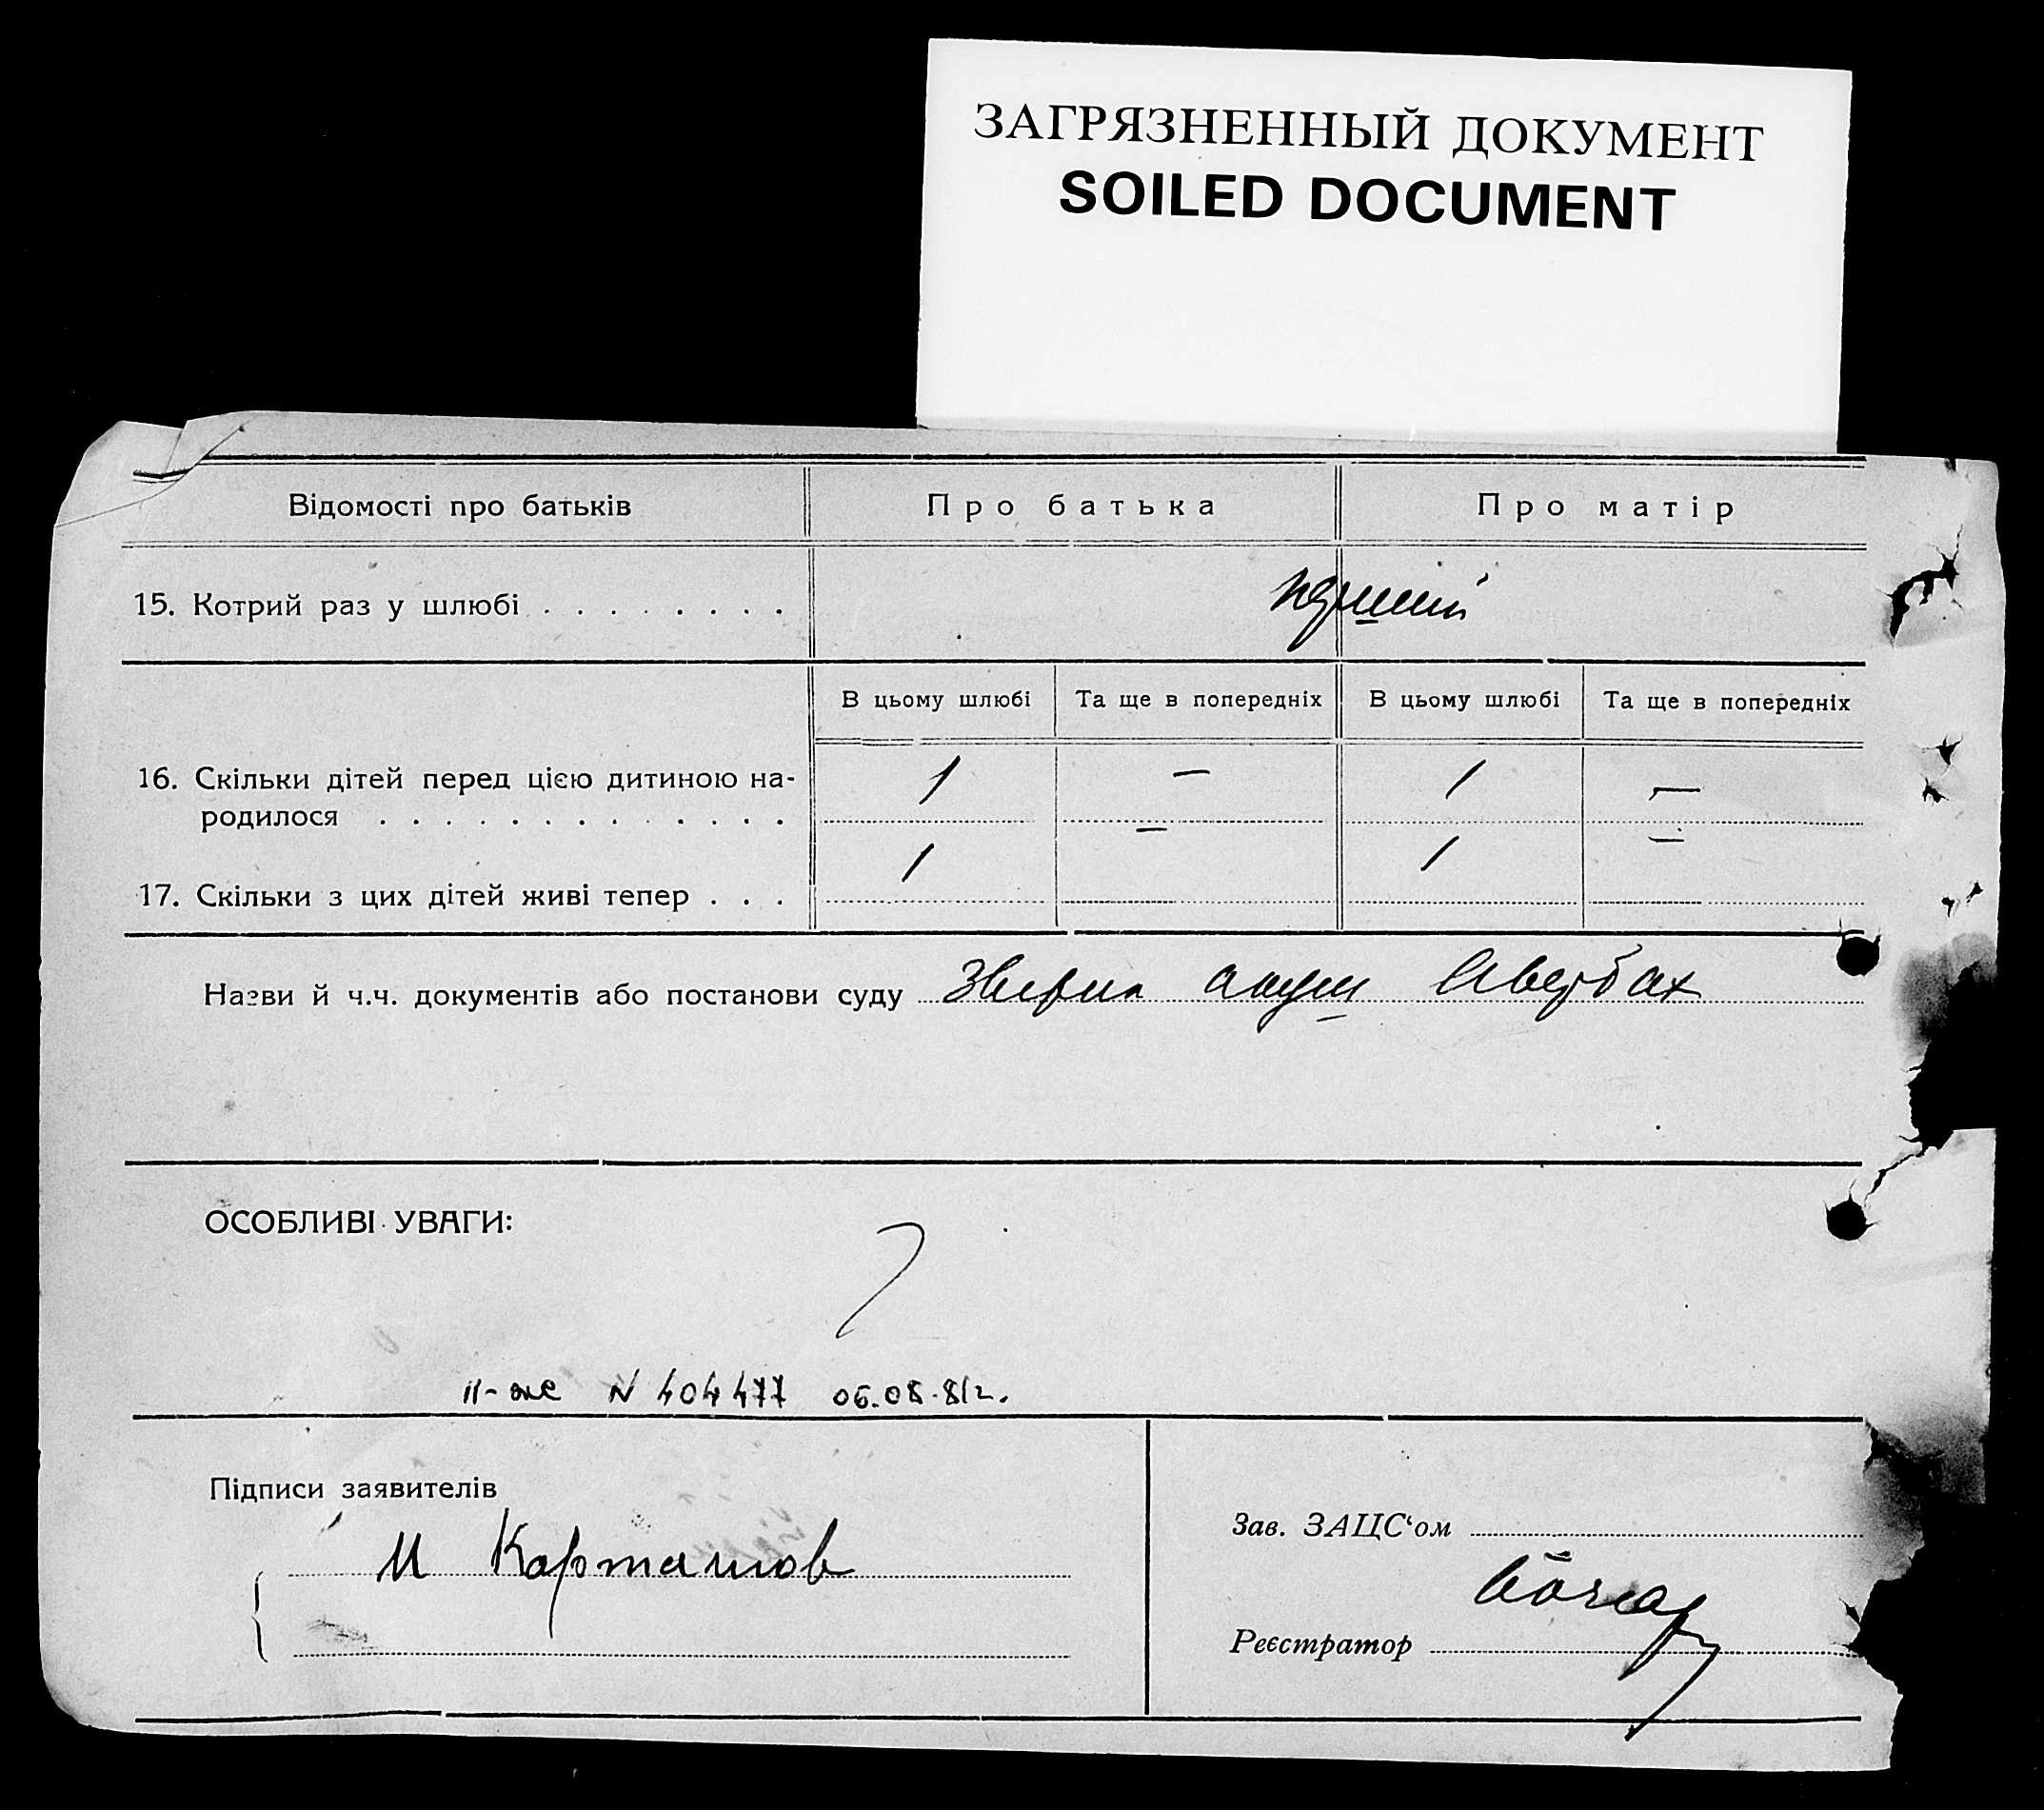 ЗАГРЯЗНЕННЫЙ ДОКУМЕНТ
SOILED DOCUMENT
Відомості про батьків Про батька Про матір
15. Котрий раз у шлюбі . . . . . . . . перший
В цьому шлюбі Та ще в попередніх В цьому шлюбі Та ще в попередніх
16. Скільки дітей перед цією дитиною на-
родилося . . . . . . . . . . . . . 1 — 1 —
17. Скільки з цих дітей живі тепер . . . 1 — 1 —
Назви й ч.ч. документів або постанови суду Авербах
ОСОБЛИВІ УВАГИ:
II-же N 404477 06.08.81г.
Підписи заявителів
И Карташов
Зав. ЗАЦС‘ом
Реєстратор